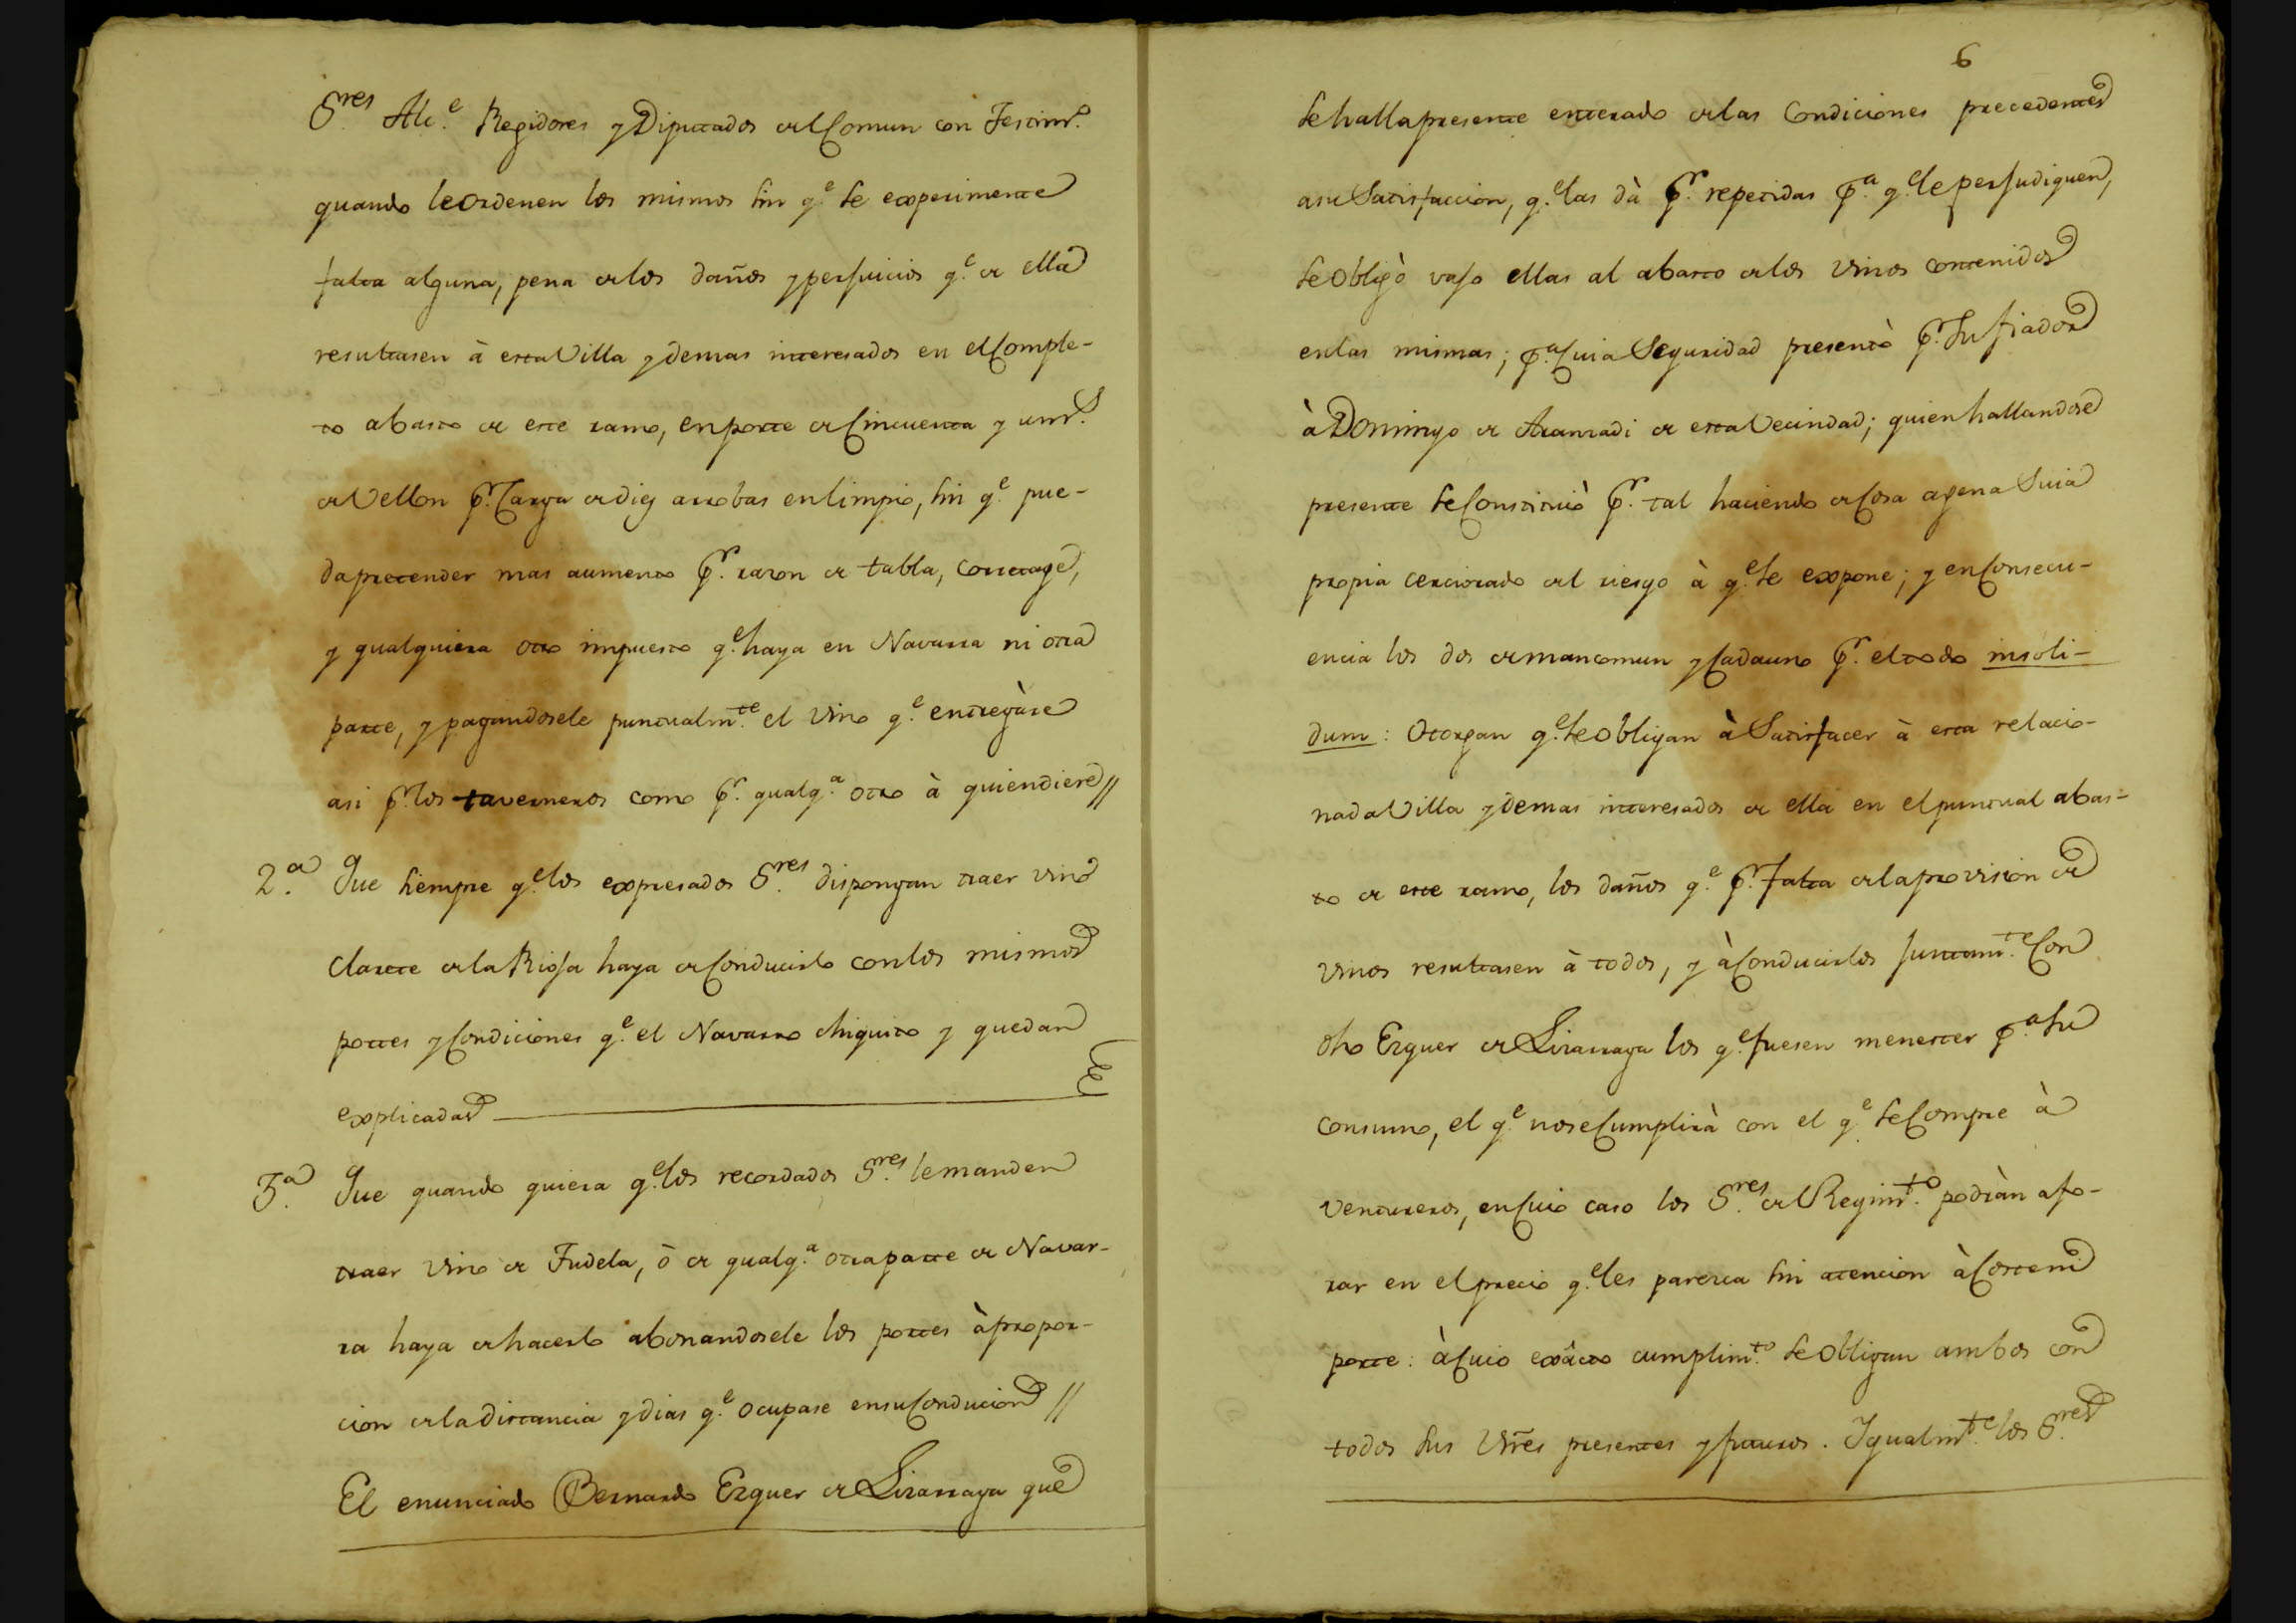 S.res Alc.e Regidores y Diputados del Comun con Testim.o
quando le ordenen los mismos sin q.e se experimente
falta alguna, pena de los daños y perjuicios q.e de ella
resultasen à esta Villa y demas interesados en el Comple-
to abasto de este ramo, en porte de Cincuenta y un r.s
de Vellon p.r Carga de diez arrobas en limpio, sin q.e pue-
da pretender mas aumento p.r razon de tabla, corretage,
y qualquiera otro impuesto q.e haya en Navarra ni otra
parte, y pagandosele puntualm.te el vino q.e entregàre
asi p.r los taverneros como p.r qualq.a otro à quien diere //
2.a Que siempre q.e los expresados S.res dispongan traer vino
Clarete de la Rioja haya de Conducirlo con los mismos
portes y Condiciones q.e el Navarro chiquito y quedan
explicadas
3.a Que quando quiera q.e los recordados S.res le manden
traer vino de Tudela, ò de qualq.a otra parte de Navar-
ra haya de hacerlo abonandosele los portes à propor-
cion de la distancia y dias q.e ocupase en su Conducion //
El enunciado Bernardo Ezquer de Lizarraga que
6
se halla presente enterado de las Condiciones precedentes
a su Satisfaccion, q.e las dà p.r repetidas p.a q.e le perjudiquen,
se obligò vajo ellas al abasto de los vinos contenidos
en las mismas; p.a Cuia Seguridad presentò p.r su fiador
à Domingo de Aranzadi de esta Vecindad; quien hallandose
presente se Constituiò p.r tal haciendo de Cosa agena Suia
propia cerciorado del riesgo à q.e se expone; y en Consecu-
encia los dos de mancomun y Cada uno p.r el todo insoli-
dum: Otorgan q.e se obligan à Satisfacer à esta relacio-
nada Villa y demas interesados de ella en el puntual abas-
to de este ramo, los daños q.e p.r falta de la provision de
vinos resultasen à todos, y à Conducirlos juntam.te Con
dho Ezquer de Lizarraga los q.e fuesen menester p.a su
consumo, el q.e no se Cumplirà con el q.e se Compre à
ventureros, en Cuio caso los S.res del Regim.to podràn afo-
rar en el precio q.e les parezca sin atencion à Coste ni
porte: à Cuio exâcto cumplim.to se obligan ambos con
todos sus Vñes presentes y futuros. Igualm.te los S.res